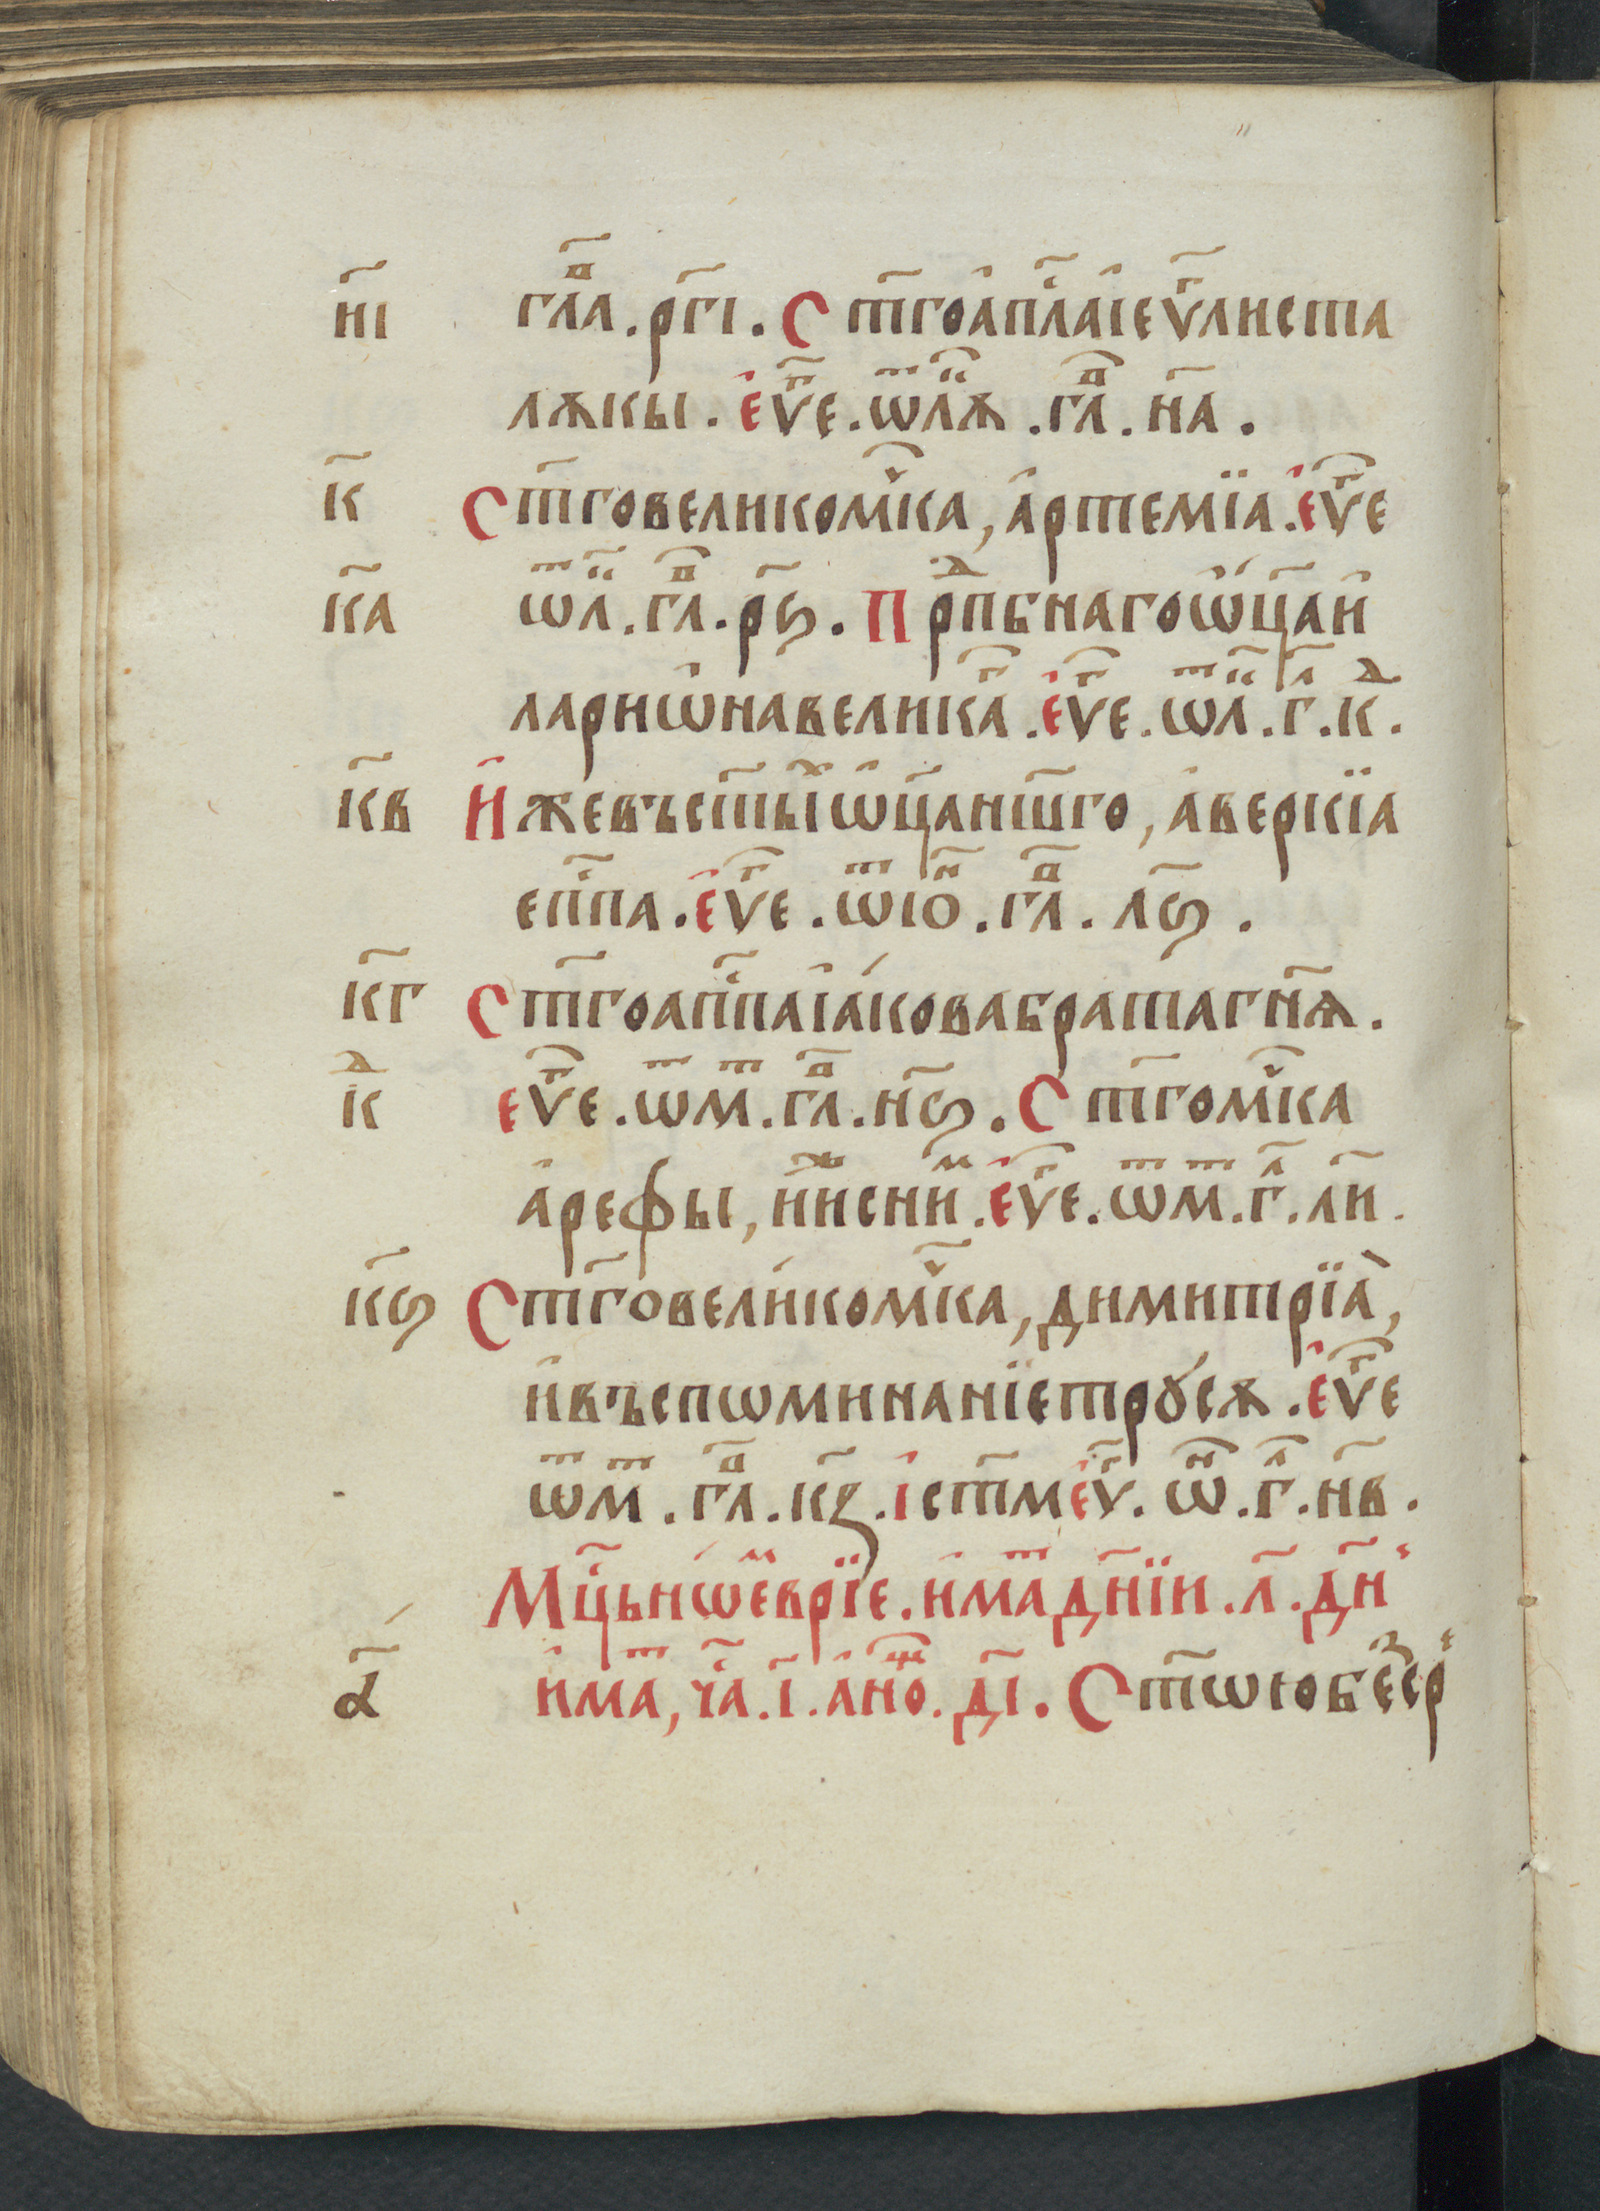 н҃і гл҃аⷡ . рг҃і . Ст҃гоа̑пⷭ҇лаі̑еѵⷢ҇листа
лѫкы . е̑ѵⷢ҇е . ѿлꙋⷦ҇ѫ . глⷡ҇ . н҃а .
к҃ Ст҃говеликомⷱ҇ка, а̑ртемїа . е̑ѵⷢ҇е
к҃а ѿлⷦ҇ . глⷡ҇ . рѕ҃ . Прⷣпбнагоѡ҆ц҃аи̑
лариѡ̑навеликаⷢ҇ . е̑ѵⷢ҇е . ѿлⷦ҇ . гⷧ҇ . кⷣ .
к҃в И̑жевъст҃ыⷯи̑ѡ̑ц҃анш҃го, а̑веркїа
епⷭ҇па . е̑ѵⷢ҇е . ѿіѡⷩ҇ . глⷡ҇ . лѕ҃ .
к҃г Ст҃гоапⷭ҇паі̑а́ковабратагн҃ѧ .
кⷣ еѵⷢ҇е . ѿмⷮ . глⷡ҇ . нѕ҃ . Ст҃гомⷱ҇ка
а̑рефы, и̑ижⷤесниⷨ . е̑ѵⷢ҇е . ѿмⷮ . гⷧ҇ . л҃и .
к҃ѕ Ст҃говели́комⷱ҇ка, димитрїа̀,
и̑въспѡминанїетрꙋ́сѫ . е̑ѵⷢ҇е
ѿмⷮ . глⷡ҇ . кꙁ҃ . і̑ст҃ме̑ѵⷢ҇ . ѿⷩ҇ . гⷧ҇ . н҃в .
Мцⷭ҇ьнѡе́ⷨврїе . и̑маⷮдн҃їи . л҃ . дн҃
а҃ и̑маⷮ, чⷭ҇а . і҃ . а̑нѡ́ⷳ҇ . д҃і . Ст҃ѡюбеⷥср